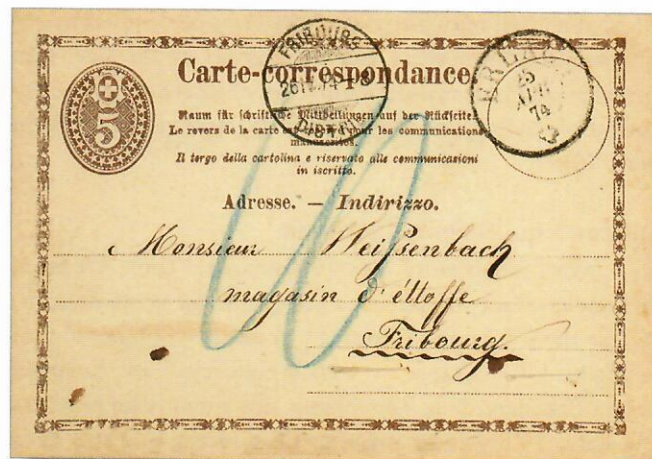 FRIBOURG
DISTR.
74
Carte-correspondance.
5
Raum für schriftliche Mittheilungen auf der Rückseite.
Le revers de la carte est pour les communications
manuscrites.
Il tergo della cartolina e riservato alle communicazioni
in iscritto.
Adresse. — Indirizzo.
Monsieur Weißenbach
magasin d'étloffe
Fribourg.